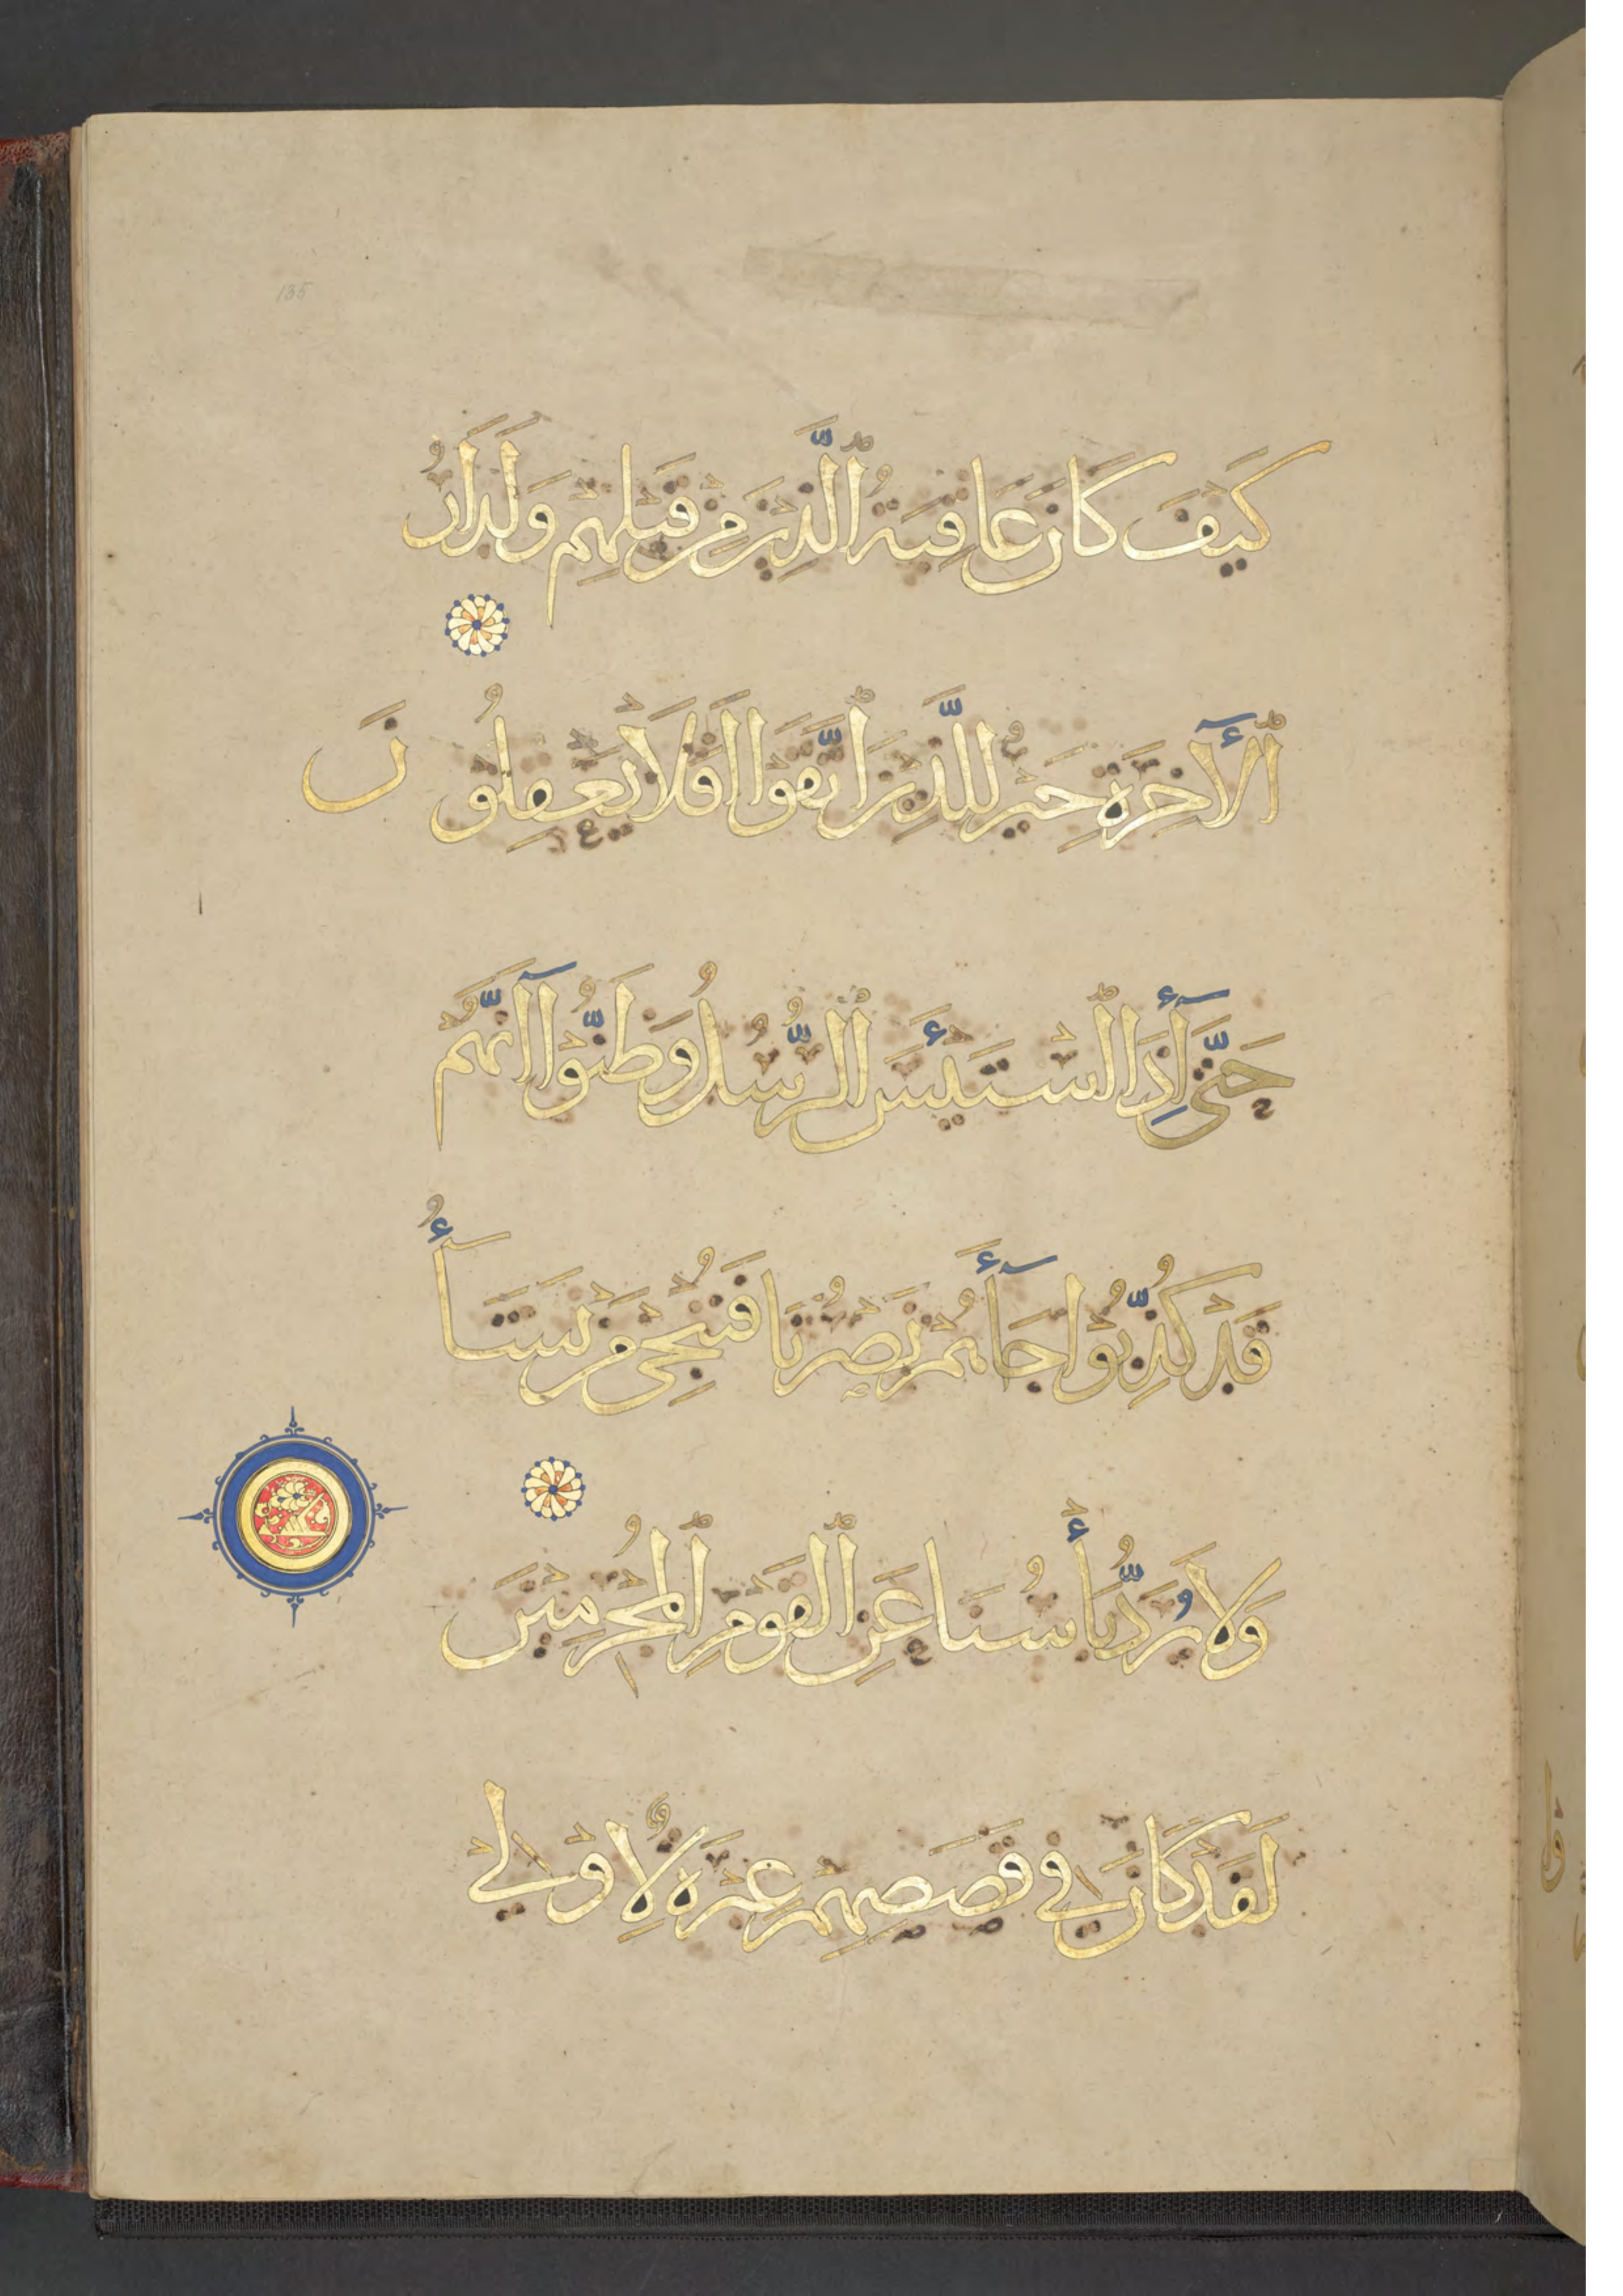 135
كَيْفَ كَانَ عَاقِبَةُ ٱلَّذِينَ مِنْ قَبْلِهِمْ وَلَدَارُ
ٱلْآخِرَةِ خَيْرٌ لِلَّذِينَ ٱتَّقَوْا أَفَلَا يَعْقِلُونَ
حَتَّىٰ إِذَا ٱسْتَيْـَٔسَ ٱلرُّسُلُ وَظَنُّوٓا أَنَّهُمْ
قَدْ كُذِّبُوا جَآءَهُمْ نَصْرُنَا فَنُنْجِي مَنْ نَشَآءُ
وَلَا يُرَدُّ بَأْسُنَا عَنِ ٱلْقَوْمِ ٱلْمُجْرِمِينَ
لَقَدْ كَانَ فِي قَصَصِهِمْ عِبْرَةٌ لِأُولِي